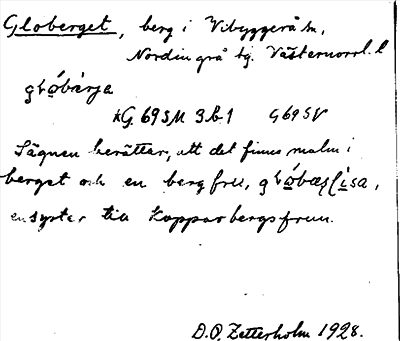 Globerget, berg i Vibyggerå sn,
Nordingrå tg. Västernorrl. l
kG. 69 SM 3 b 1 G 69 SV
Sägnen berättar, att det finns malm i
berget och en bergfru,
en syster till Kopparbergsfrun.
D.O. Zetterholm 1928.